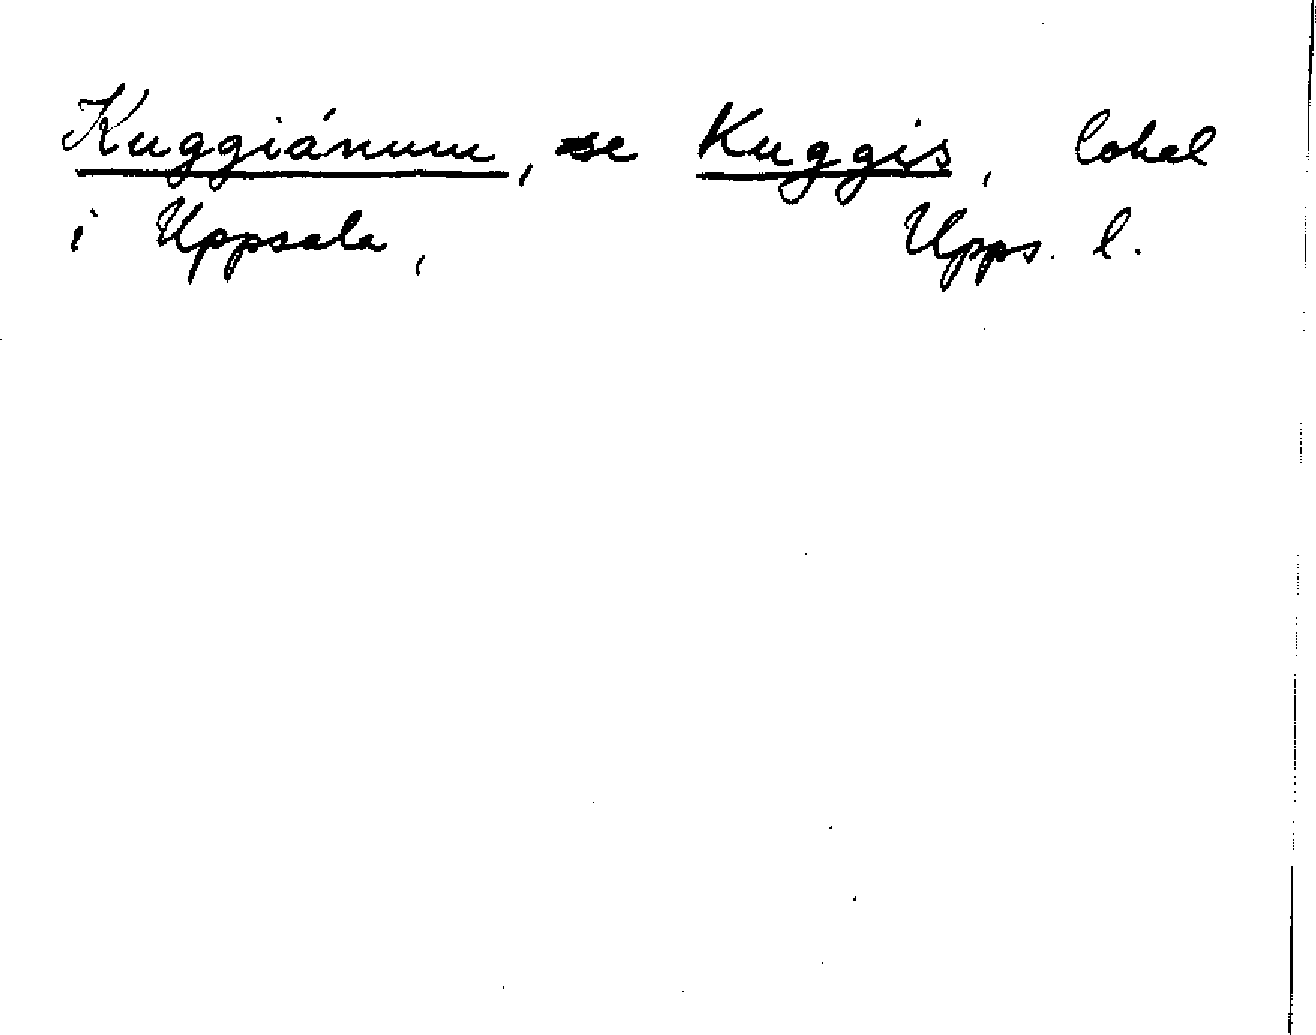 Kuggiánum, se Kuggis, lokal
i Uppsala, Upps. l.